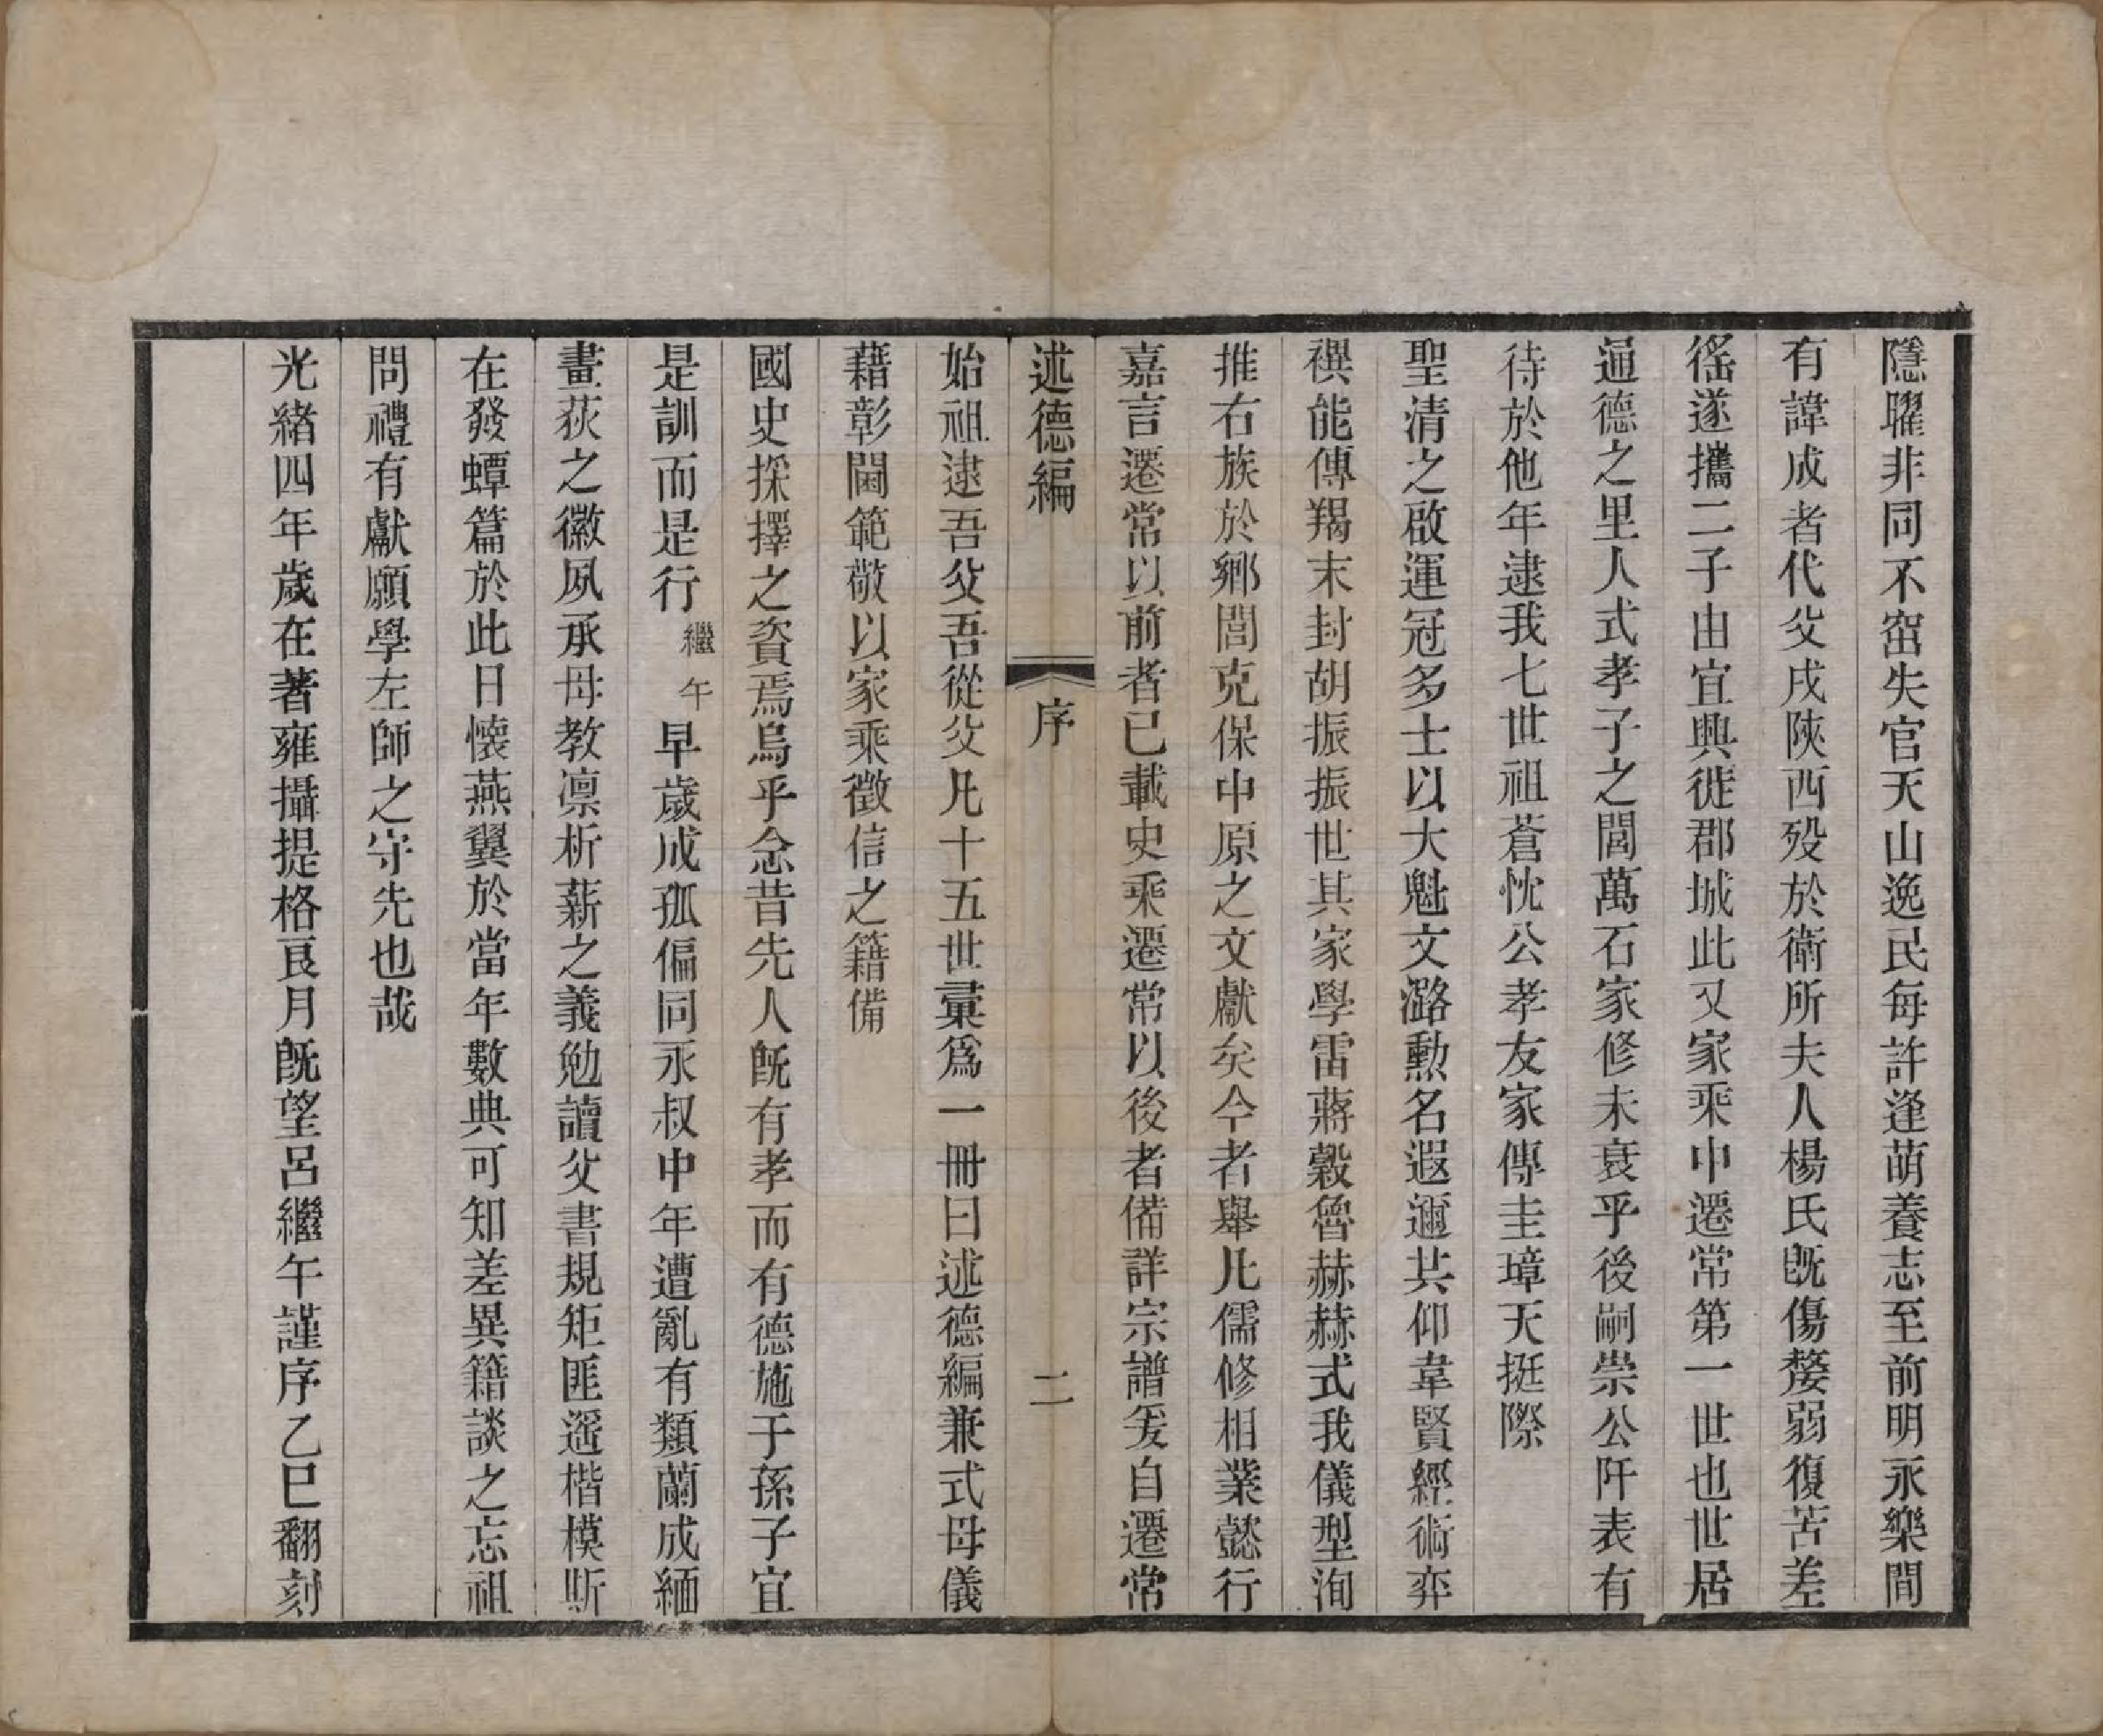 隱曜非同不窋失官天山逸民每許逢萌養志至前明永樂間
有諱成者代父戌陝西歿於衛所夫人楊氏旣傷嫠弱復苦差
徭遂攜二子由宜興徙郡城此又家乘中遷常第一世也世居
通德之里人式孝子之閭萬石家修未衰乎後嗣崇公阡表有
待於他年逮我七世祖蒼忱公孝友家傳圭璋天挺際
聖清之啟運冠多士以大魁文潞勲名遐邇共仰韋賢經術弈
禩能傳羯末封胡振振世其家學雷蔣穀魯赫赫式我儀型洵
推右族於鄉閭克保中原之文獻矣今者舉凡儒修相業懿行
嘉言遷常以前者已載史乘遷常以後者備詳宗譜爰自遷常
述德編 序 二
始祖逮吾父吾從父凡十五世彙爲一冊曰述德編兼式母儀
藉彰閫範敬以家乘徵信之籍備
國史採擇之資焉烏乎念昔先人旣有孝而有德施于孫子宜
是訓而是行繼午早歲成孤偏同永叔中年遭亂有類蘭成緬
畫荻之徽夙承母教凛析薪之義勉讀父書規矩匪遥楷模斯
在發蟫篇於此日懷燕翼於當年數典可知差異籍談之忘祖
問禮有獻願學左師之守先也哉
光緒四年歲在著雍攝提格艮月旣望呂繼午謹序乙巳翻刻